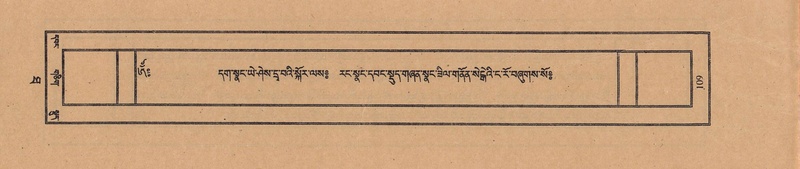 ༄༅༔ དག་སྣང་ཡེ་ཤེས་དྲྭ་བའི་སྐོར་ལས༔ རང་སྣང་དབང་སྡུད་གཞན་སྣང་ཟིལ་གནོན་སེངྒེའི་ང་རོ་བཞུགས་སོ༔
109